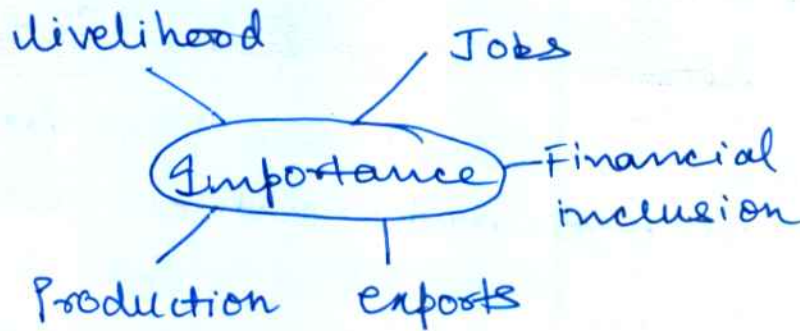 livelihood
Jobs
Importance
Financial
inclusion
Production
exports